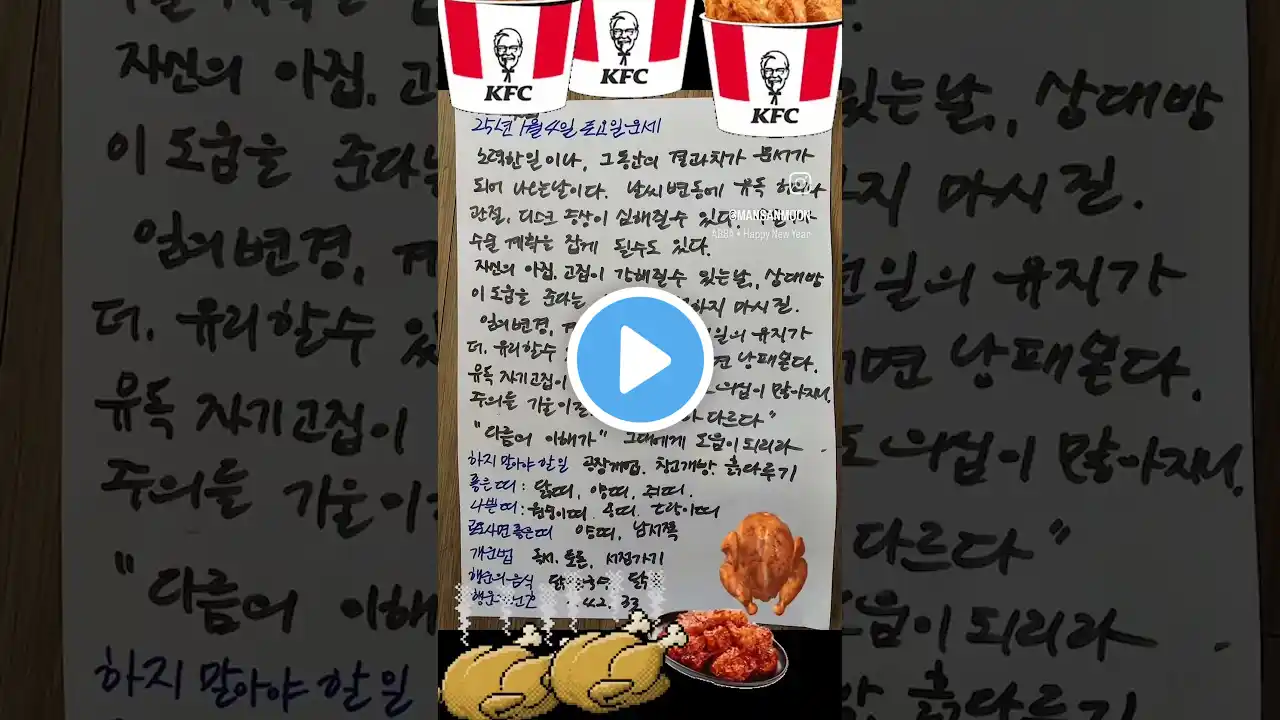 KFC
KFC
KFC
25년 1월 4일 토요일 운세
노력한 일이나, 그동안의 결과치가 문서가
되어 나오는날이다. 날씨변동에 유독
@MANSANMOON
관절, 디스크 증상이 심해질수 있다.
ABBA • Happy New Year
수술 계획을 잡게 될수도 있다.
자신의 아집, 고집이 강해질수 있는날, 상대방
이 도움을 준다는 하지 마시길.
일의변경, 일의 유지가
더. 유리할수 면 낭패본다.
유독 자기고집이 의심이 많아지니,
주의를 기울이 다르다"
"다름의 이해가" 그대에게 도움이되리라
하지 말아야 할일 공장개업, 창고개방, 흙다루기
좋은띠: 닭띠, 양띠, 쥐띠.
나쁜띠: 원숭이띠. 소띠. 호랑이띠
로또사면 좋은띠 양띠, 남서쪽
개운법 독서. 토론, 서점가기
행운의 음식 닭
행운 번호 42. 33